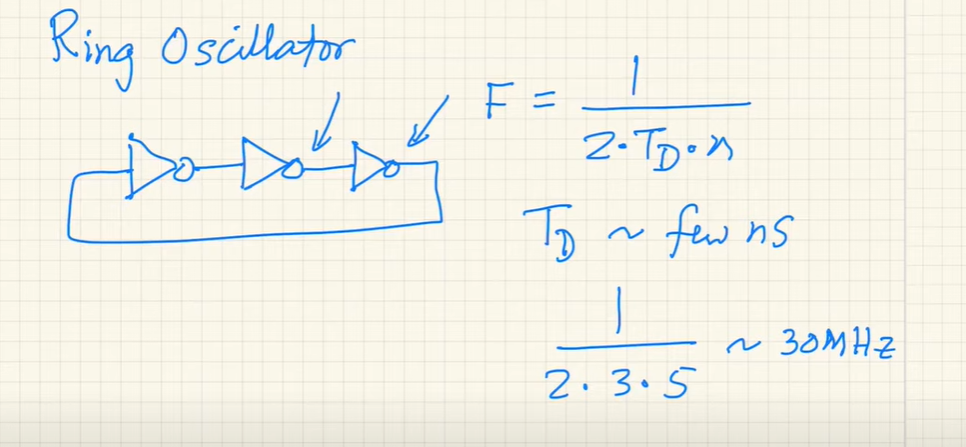 Ring Oscillator
F = 1 / 2·T_D·n
T_D ~ few ns
1 / 2·3·5 ~ 30MHz